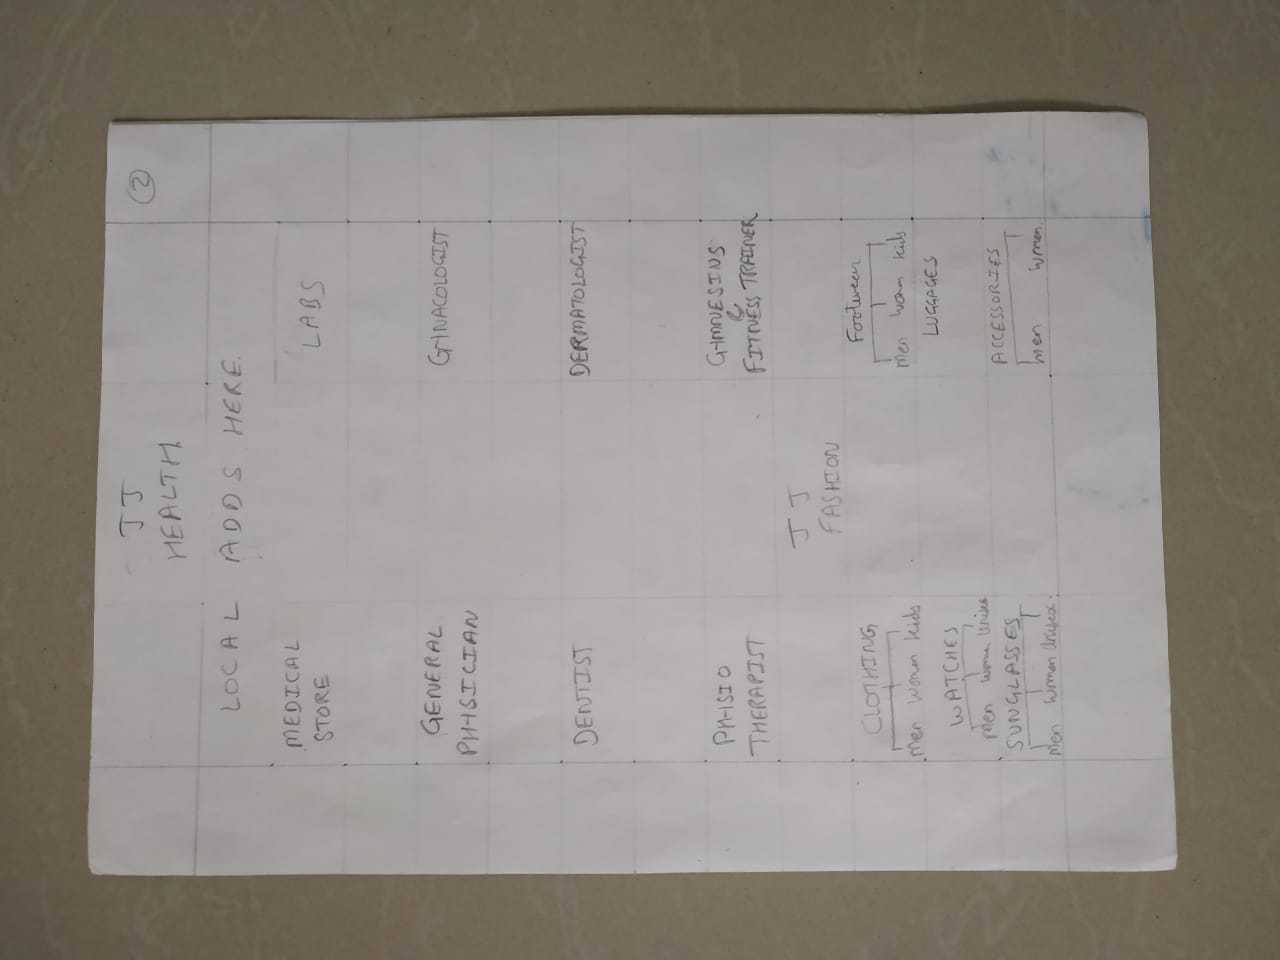 JJ
2
HEALTH
LOCAL ADDS HERE.
MEDICAL
STORE
LABS
GENERAL
PHYSICIAN
GYNACOLOGIST
DENTIST
DERMATOLOGIST
PHYSIO
THERAPIST
GYMNESINS
&
FITNESS TRAINER
JJ
FASHION
CLOTHING
men women kids
Footwear
men women kids
LUGGAGES
WATCHES
men women Unisex
SUNGLASSES
men women Unisex
ACCESSORIES
men women